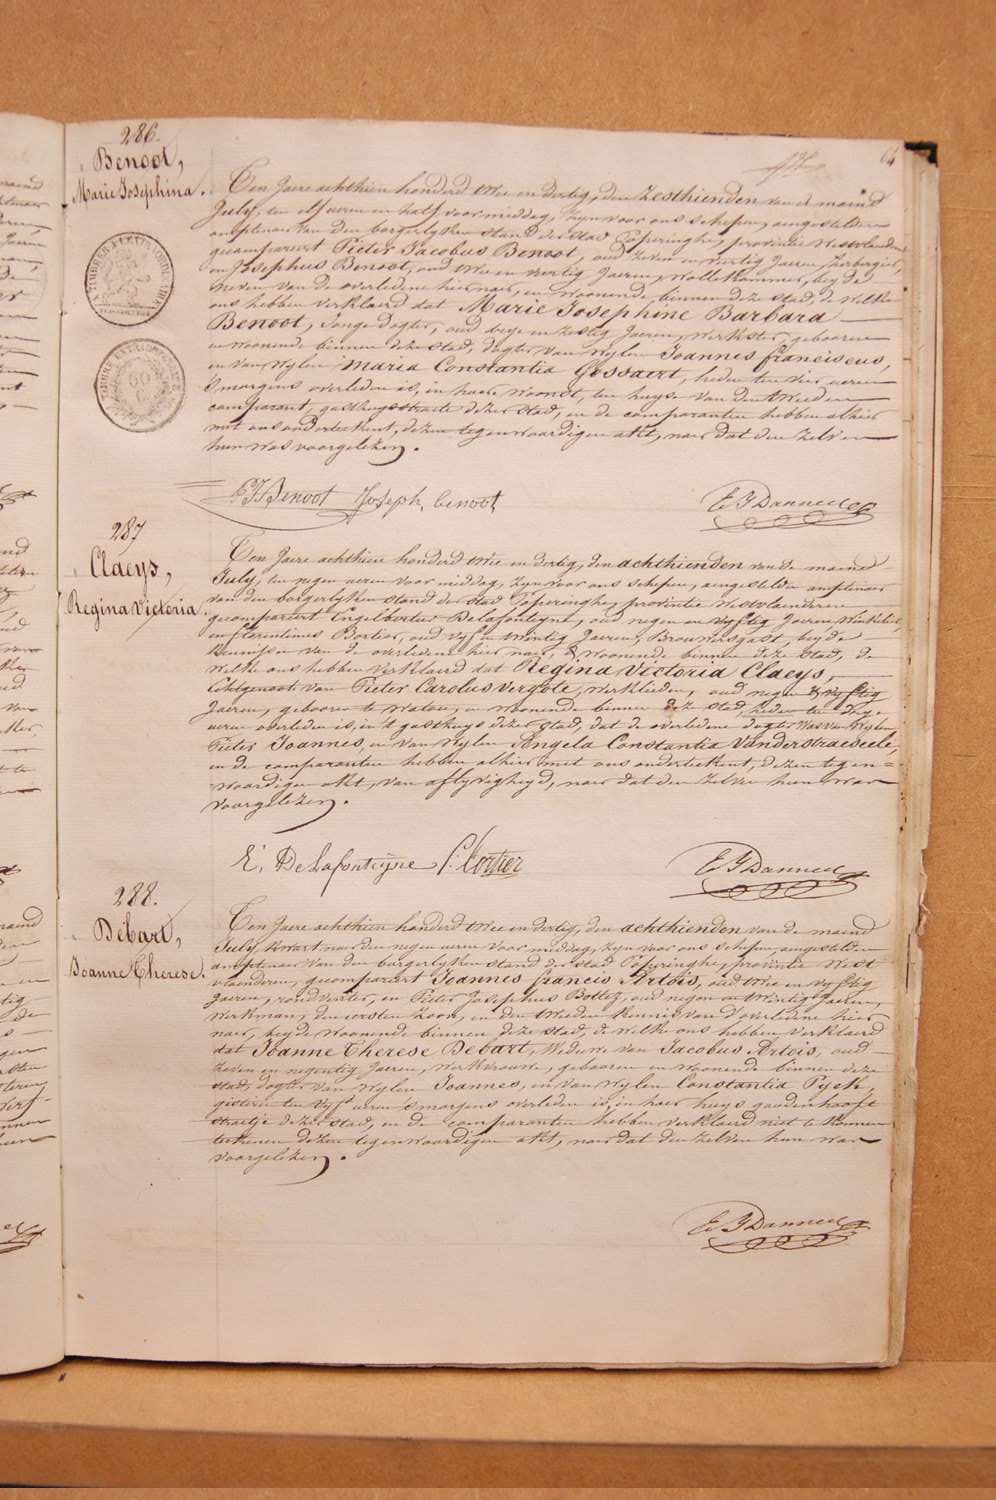 64
286.
Benoot,
Marie Josephina.
Ten Jaere achthien honderd twee en dertig, den zesthienden van de maend
July, ten elf ueren en half voor middag, zyn voor ons schepen, aengestelden
amptenaer van den borgerlyken stand der stad Poperinghe, provintie Westvlaenderen
gecompareert Pieter Jacobus Benoot, oud zeven en veertig Jaeren, herbergier,
en Josephus Benoot, oud twee en veertig Jaeren, wollekammer, beyde
neven van de overledene hier naer, en woonende binnen deze stad, de welke
ons hebben verklaerd dat Marie Josephine Barbara
Benoot, Jonge dogter, oud dry en zestig Jaeren, werkster, gebooren
en woonende binnen deze stad, dogter van wylen Joannes franciscus,
en van wylen Maria Constantia Gossaert, heden ten vier ueren
s'morgens overleden is, in haere woonst, ten huyze van den tweeden
comparant, gasthuysstraete dezer stad, en de comparanten hebben alhier
met ons onderteekent, dezen tegenwoordigen akt, naer dat den zelven
hun was voorgelezen.
P J Benoot Joseph, benoot, E J Danneel
TIMBRE EXTRAORDINAIRE
287
Claeys,
Regina Victoria.
Ten Jaere achthien honderd twee en dertig, den achthienden van de maend
July, ten negen ueren voor middag, zyn voor ons schepen, aengestelden amptenaer
van den borgerlyken stand der stad Poperinghe, provintie Westvlaenderen
gecompareert Engelbertus Delafonteyne, oud negen en vyftig Jaeren Winkelier,
en florentinus Cortier, oud vyf en twintig Jaeren, Brouwersgast, beyde
kennissen van de overledene hier naer, & woonende binnen deze stad, de
welke ons hebben verklaerd dat Regina Victoria Claeys,
Echtgenoote van Pieter Carolus Vergote, werklieden, oud negen & vyftig
Jaeren, gebooren te Watou, en woonende binnen deze stad, heden ten dry
ueren overleden is, in 't gasthuys dezer stad, dat de overledene dogter was van wylen
Pieter Joannes, en van wylen Angela Constantia Vanderstraeseele,
en de comparanten hebben alhier met ons onderteekent, dezen tegen=
woordigen akt, van aflyvigheyd, naer dat den zelven hun was
voorgelezen.
E. Delafonteyne f. Cortier E J Danneel
288.
Debart,
Joanne Therese.
Ten Jaere achthien honderd twee en dertig, den achthienden van de maend
July kwart naer den negen ueren voor middag, zyn voor ons schepen aengestelden
amptenaer van den burgerlyken stand der stad Poperinghe, provintie West
vlaenderen, gecompareert Joannes francis Artois, oud twee en vyftig
Jaeren, en Pieter Josephus Bolley, oud negen en twintig Jaeren,
werkman, den eersten zoon, en den tweeden kennis van d'overledene hier
naer, beyde woonende binnen deze stad, de welke ons hebben verklaerd
dat Joanne Therese Debart, Weduwe van Jacobus Artois, oud
zeven en negentig Jaeren, werkvrouw, gebooren en woonende binnen deze
stad, dogter van wylen Joannes, en van wylen Constantia Pyck,
gisteren ten vyf ueren s'morgens overleden is, in haer huys gaudenhooft
straetje dezer stad, en de comparanten hebben verklaerd niet te konnen
teekenen dezen tegenwoordigen akt, naer dat den zelven hun was
voorgelezen.
E J Danneel